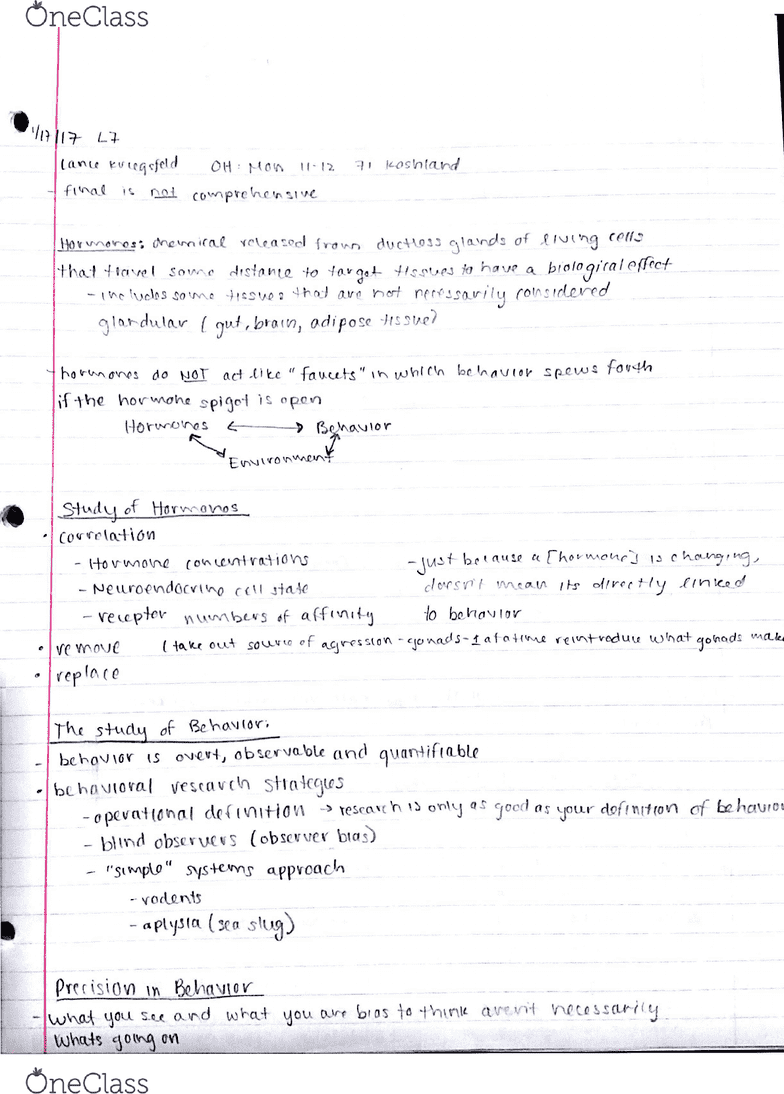 OneClass
1/17/17 L7
Lance Kriegsfeld OH: Mon 11-12 71 Koshland
- final is not comprehensive
Hormones: chemical released from ductless glands of living cells
that travel some distance to target tissues to have a biological effect
- includes some tissues that are not necessarily considered
glandular (gut, brain, adipose tissue)
- hormones do NOT act like "faucets" in which behavior spews forth
if the hormone spigot is open
Hormones ↔ Behavior
Environment
Study of Hormones
• correlation
- Hormone concentrations - just because a [hormone] is changing,
- Neuroendocrine cell state doesn't mean its directly linked
- receptor numbers of affinity to behavior
• remove (take out source of agression - gonads - 1 at a time reintroduce what gonads make
• replace
The study of Behavior:
- behavior is overt, observable and quantifiable
• behavioral research strategies
- operational definition → research is only as good as your definition of behavior
- blind observers (observer bias)
- "simple" systems approach
- rodents
- aplysia (sea slug)
Precision in Behavior
- what you see and what you are bias to think aren't necessarily
whats going on
OneClass